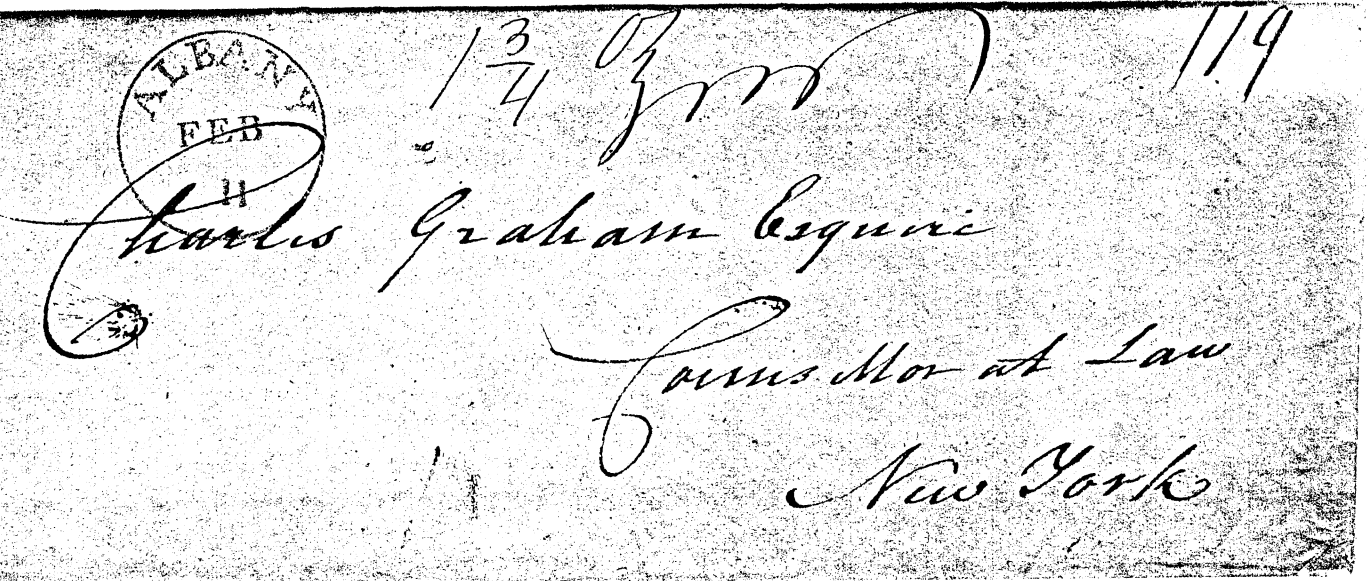 ALBANY
FEB
11
1 3/4 oz
119
Charles Graham Esquire
Counsellor at Law
New York